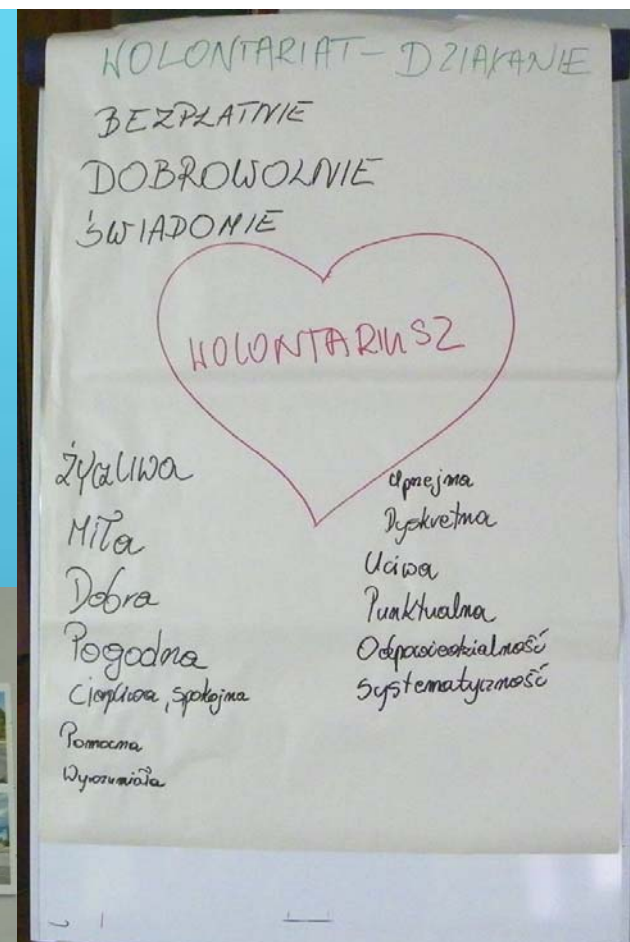 WOLONTARIAT - DZIAŁANIE
BEZPŁATNIE
DOBROWOLNIE
ŚWIADOMIE
WOLONTARIUSZ
ŻYCZLIWA
Miła
Dobra
Pogodna
Cierpliwa, spokojna
Pomocna
Wyrozumiała
Uprzejma
Dyskretna
Uciwa
Punktualna
Odpowiedzialność
Systematyczność